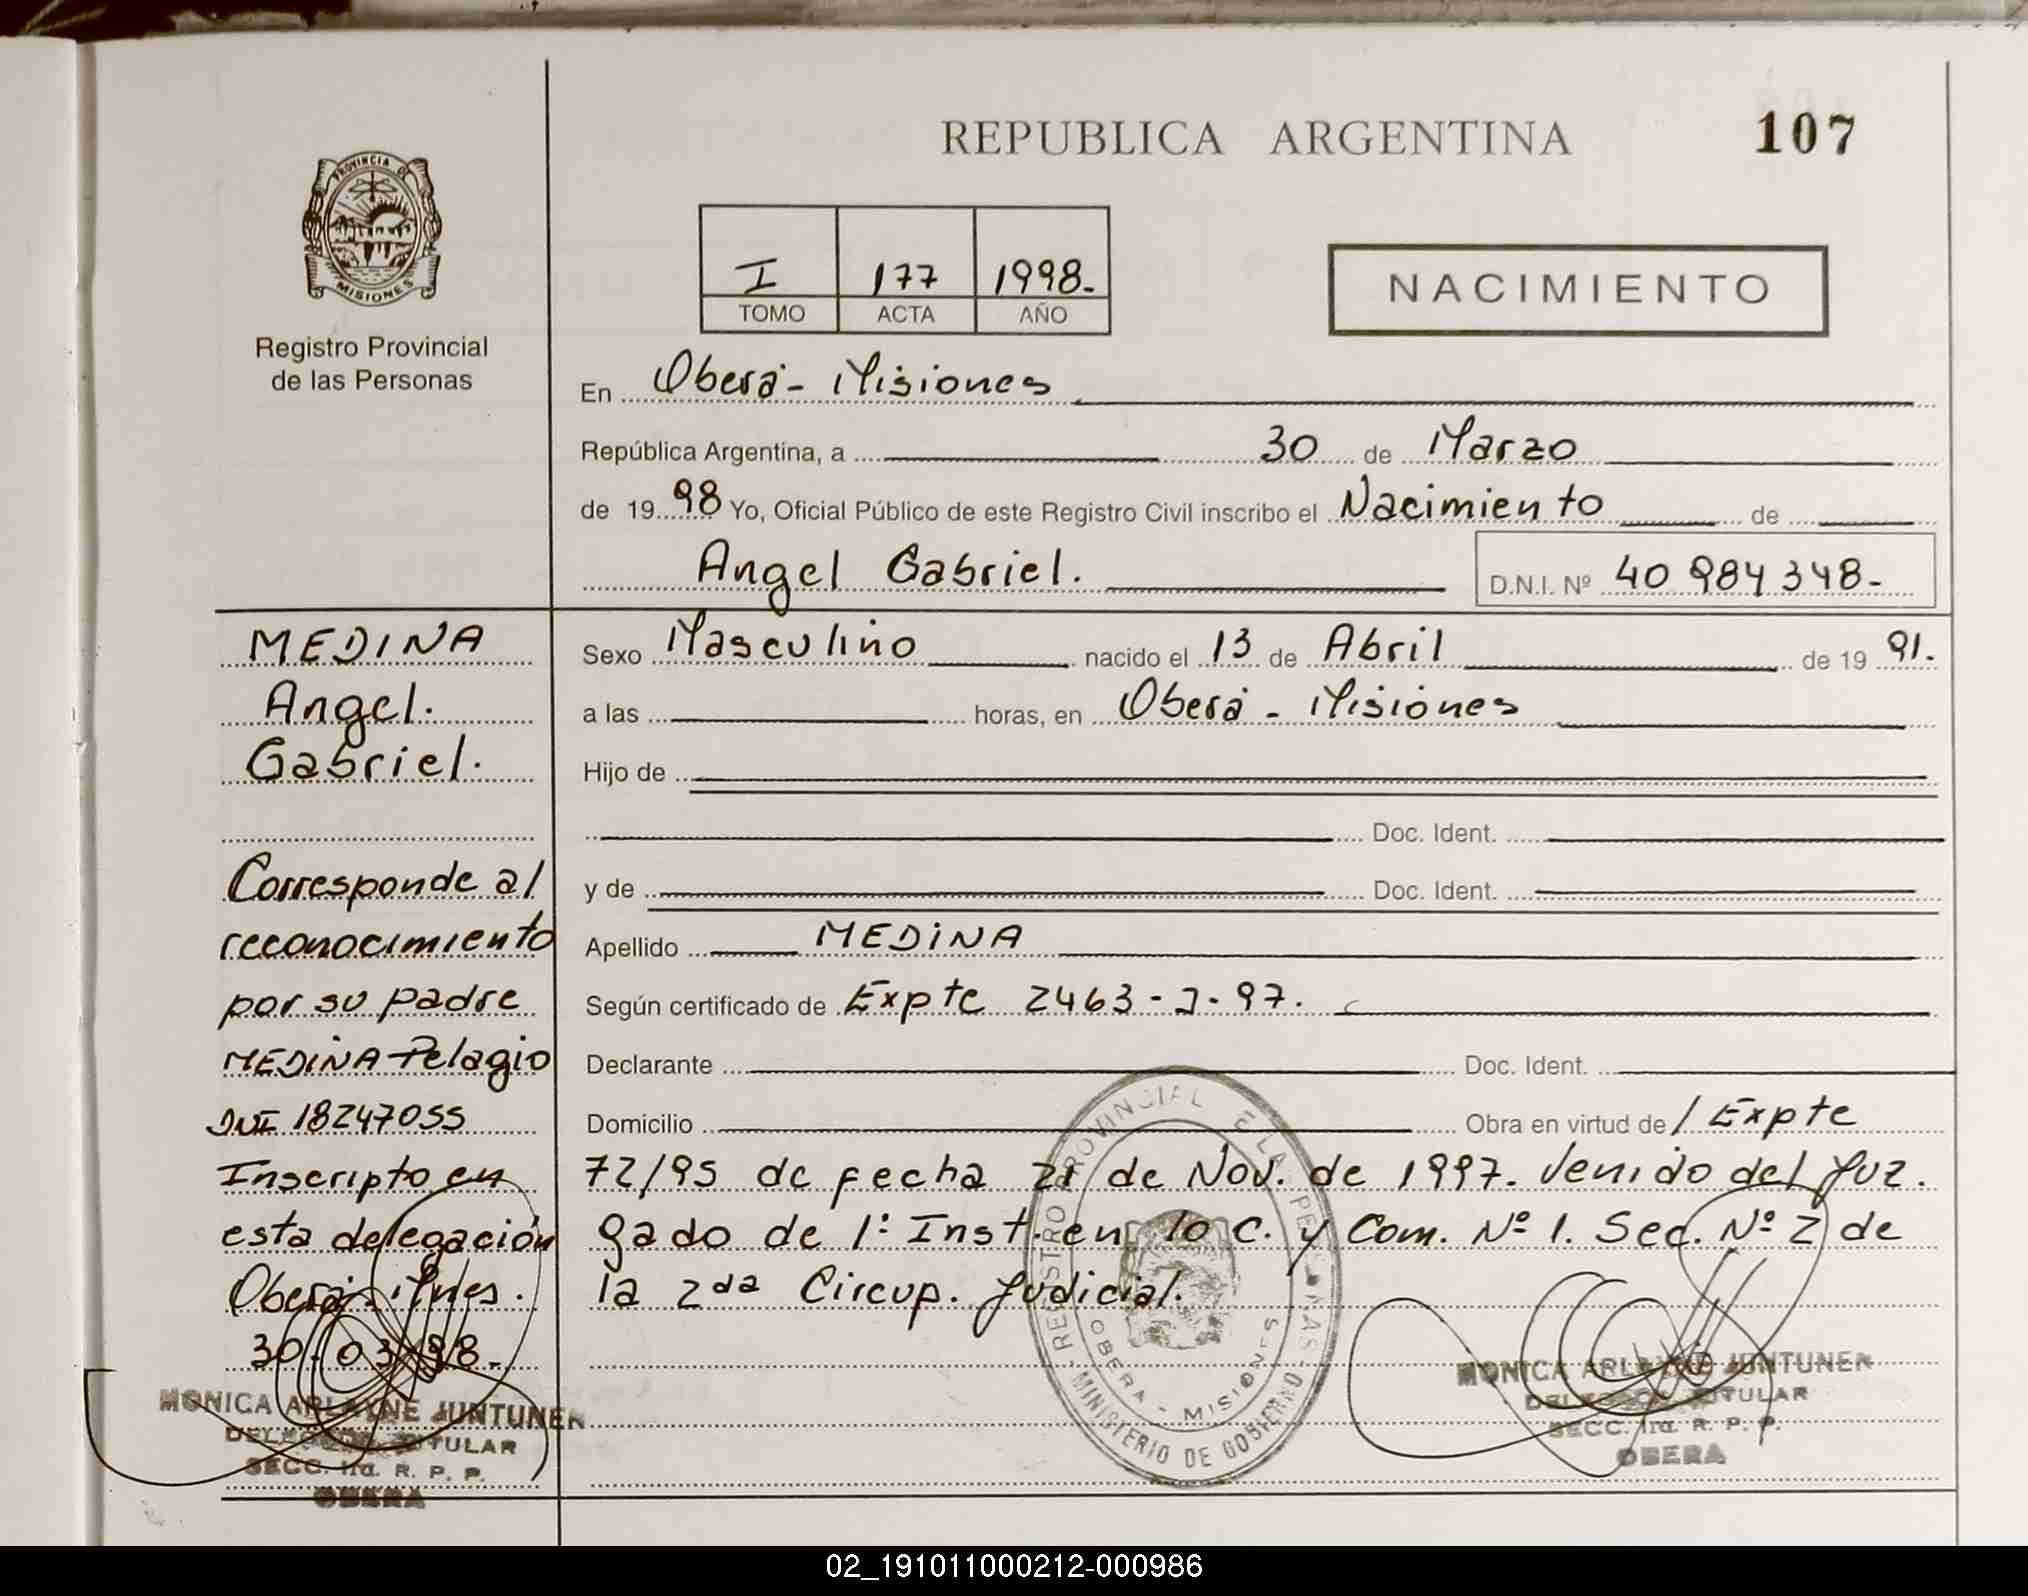 REPUBLICA ARGENTINA
107
PROVINCIA DE
MISIONES
Registro Provincial
de las Personas
I 177 1998.-
TOMO ACTA AÑO
NACIMIENTO
En Oberá - Misiones
República Argentina, a 30 de Marzo
de 19 98 Yo, Oficial Público de este Registro Civil inscribo el Nacimiento de
Angel Gabriel.
D.N.I. Nº 40 984 348-
MEDINA
Angel.
Gabriel.
Corresponde al
reconocimiento
por su padre
MEDINA Pelagio
DNI 18247055
Inscripto en
esta delegación
Oberá Mnes.
30-03-98-
MONICA ARLAYNE JUNTUNEN
DELEGADA TITULAR
SECC. R. P. P.
OBERA
Sexo Masculino nacido el 13 de Abril de 19 91.
a las horas, en Oberá - Misiones
Hijo de
Doc. Ident.
y de Doc. Ident.
Apellido MEDINA
Según certificado de Expte 2463-J-97.
Declarante Doc. Ident.
Domicilio Obra en virtud de / Expte
72/95 de fecha 21 de Nov. de 1997. Venido del Juz.
gado de 1º Inst. en lo C. y Com. Nº 1. Sec. Nº 2 de
la 2da Circup. Judicial.
REGISTRO PROVINCIAL DE LAS PERSONAS
MINISTERIO DE GOBIERNO
OBERA - MISIONES
MONICA ARLAYNE JUNTUNEN
DELEGADA TITULAR
SECC. R. P. P.
OBERA
02_191011000212-000986